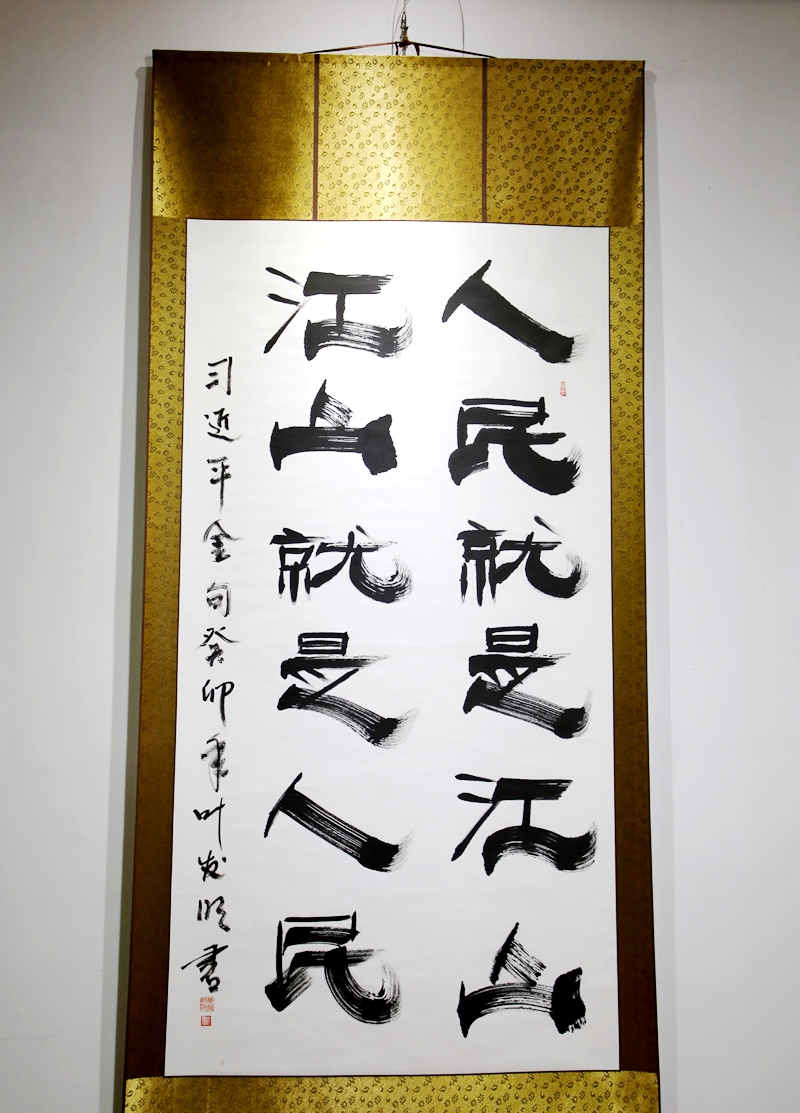 人民就是江山
江山就是人民
习近平金句癸卯年叶发顺书